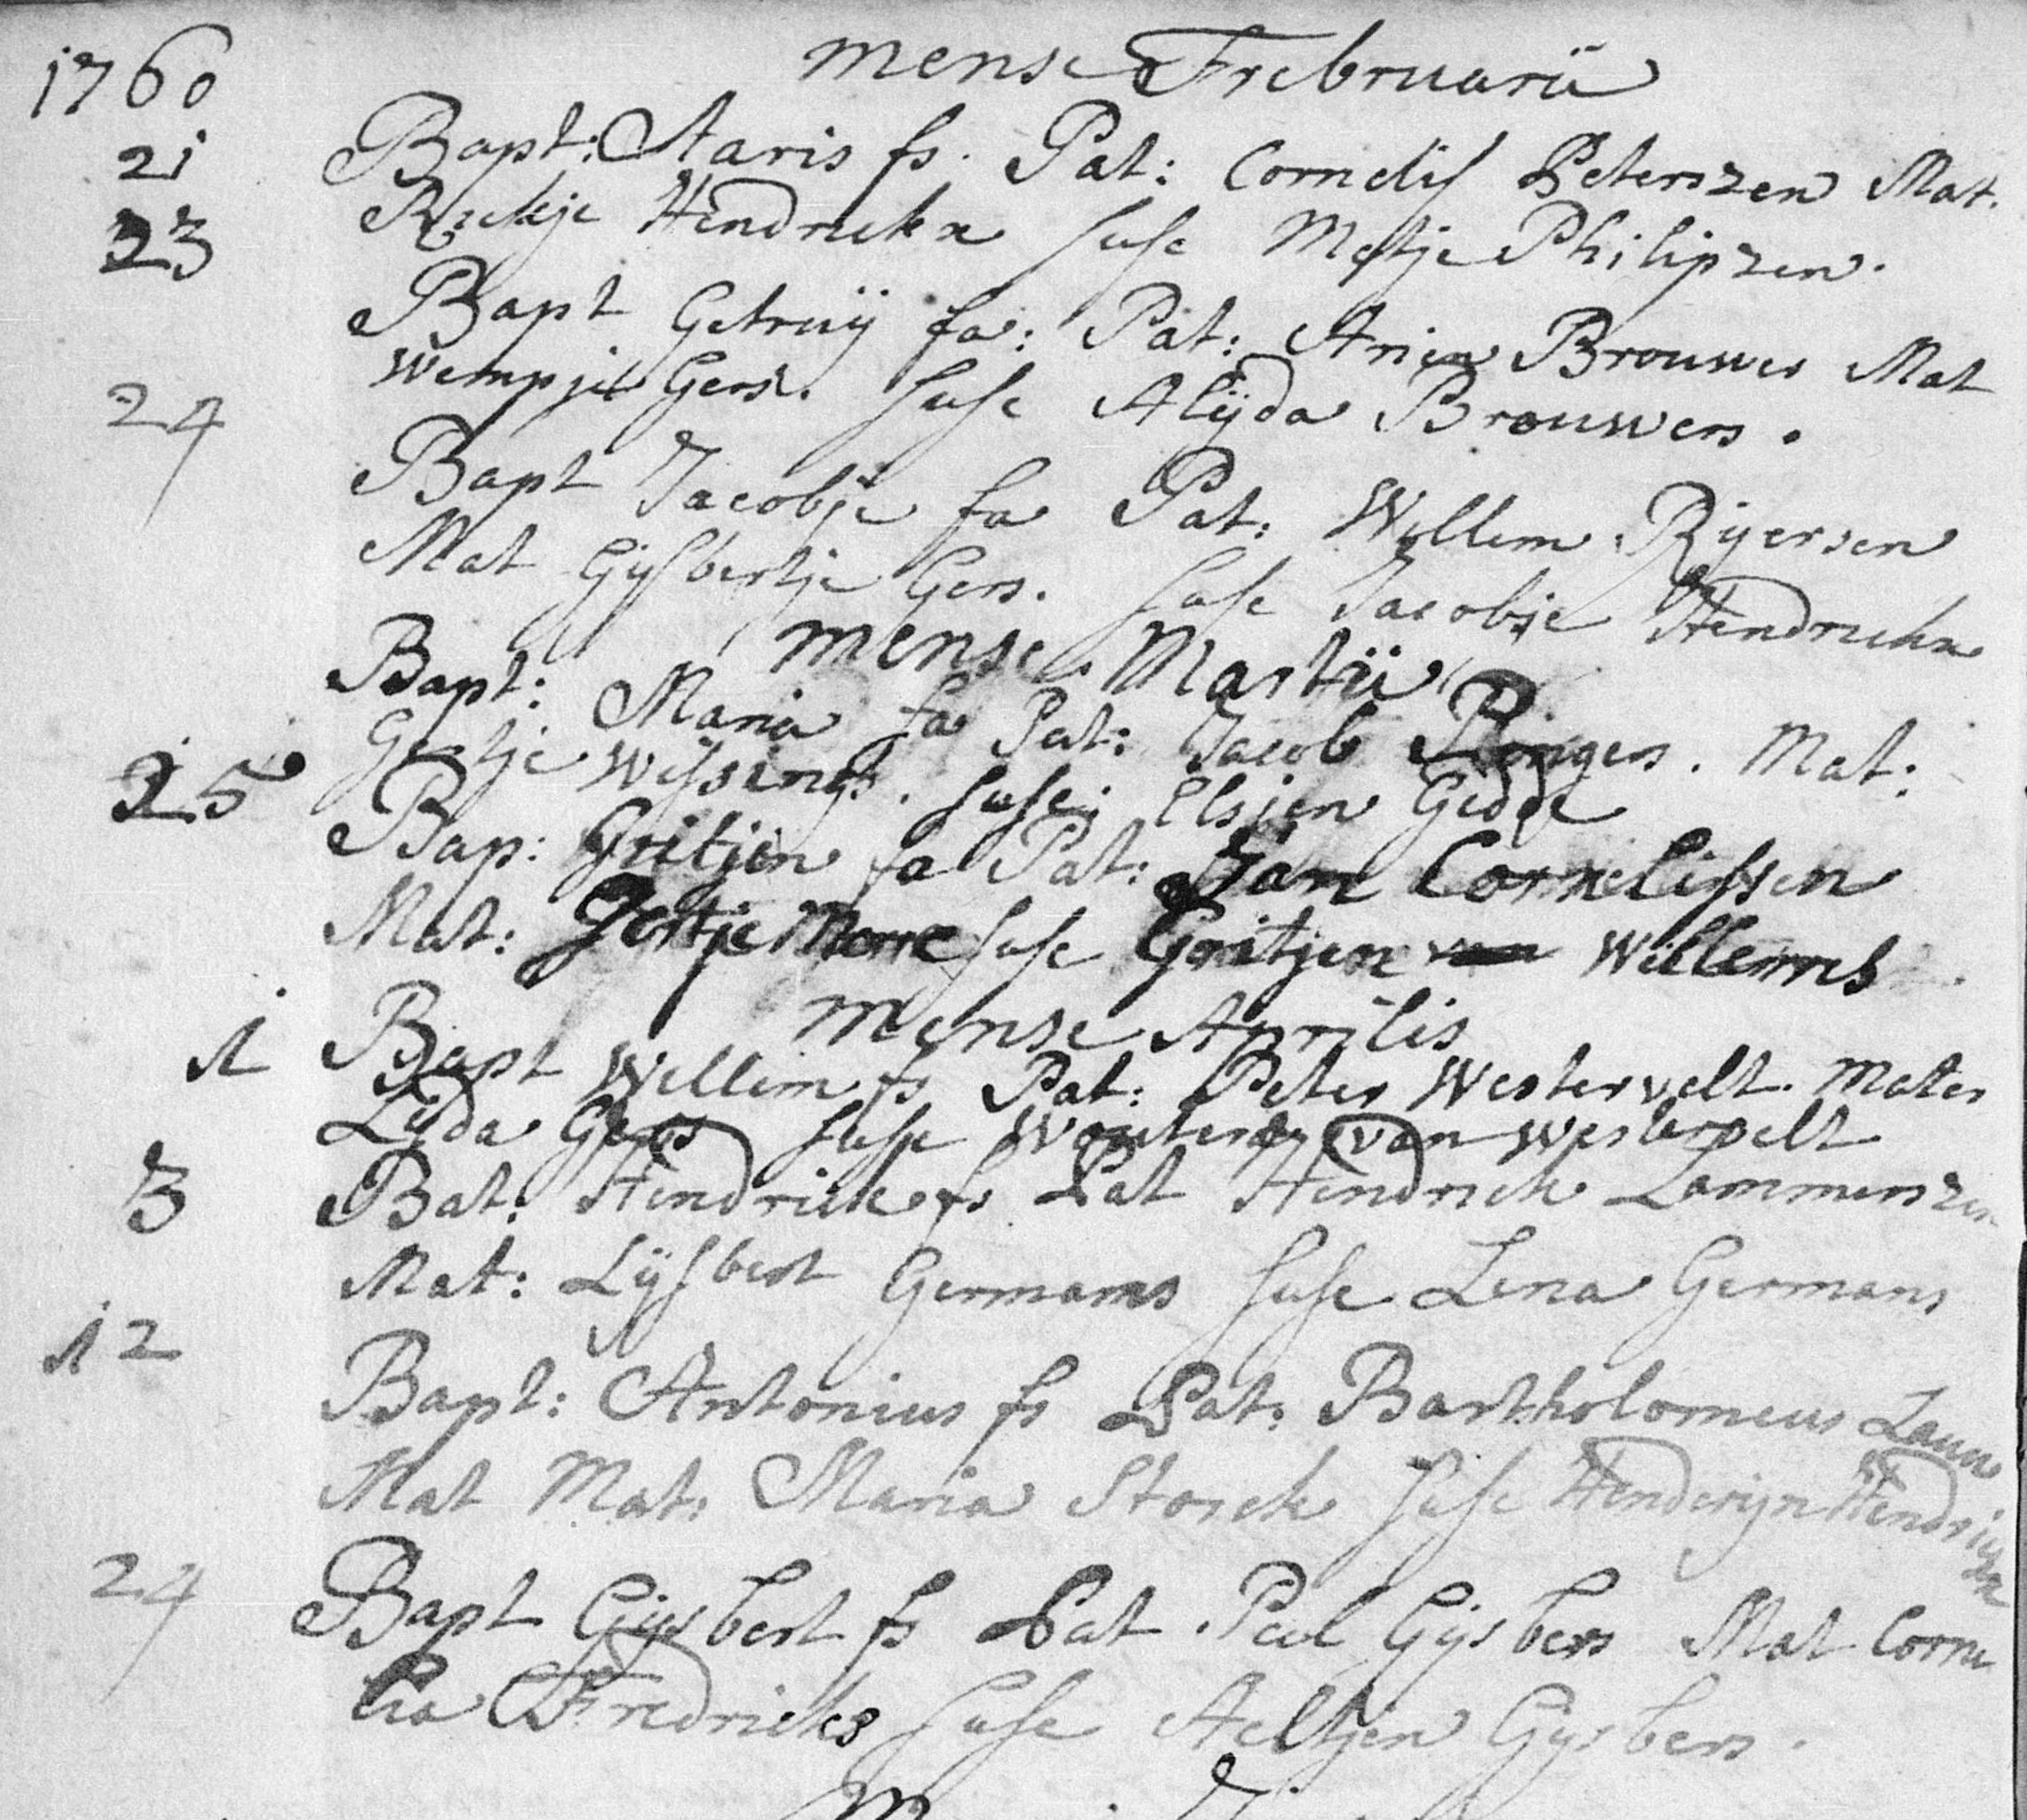 1760 mense Frebruarii
21 Bapt: Aaris fs. Pat: Cornelis Peterszen Mat.
Reckje Hendrickx suse Metje Philipzen.
23 Bapt Getruij fa: Pat: Arien Brouwer Mat
Wempje Gers. suse Alijda Brouwers.
24 Bapt Jacobje fa Pat: Willem Rijersen
Mat Gijsbertje Gers. suse Jacobje Hendrickx
mense Martii
Bapt: Maria fa Pat: Jacob Mat:
Geertje Wissingh. suse: Elsjen Gedde
25 Bap: Gritjen fa Pat: Jan Cornelissen
Mat: Gertje Morre suse Gritjen Willems
mense Aprilis
1 Bapt Willem fs Pat: Peter Westervelt. Mater
Lijda Gers suse Wouter van Westervelt
3 Bat: Hendrick fs Pat Hendrick Lammerszen
Mat: Lijsbert Germans suse Lena Germans
12 Bapt: Antonius fs Pat: Bartholomeus Laum
Mat Mat: Maria Storck suse Henderijn Hendrickx
24 Bapt Gijsbert fs Pat. Paul Gijsbers Mat Corne
lia Fredricks suse Aeltjen Gijsbers.